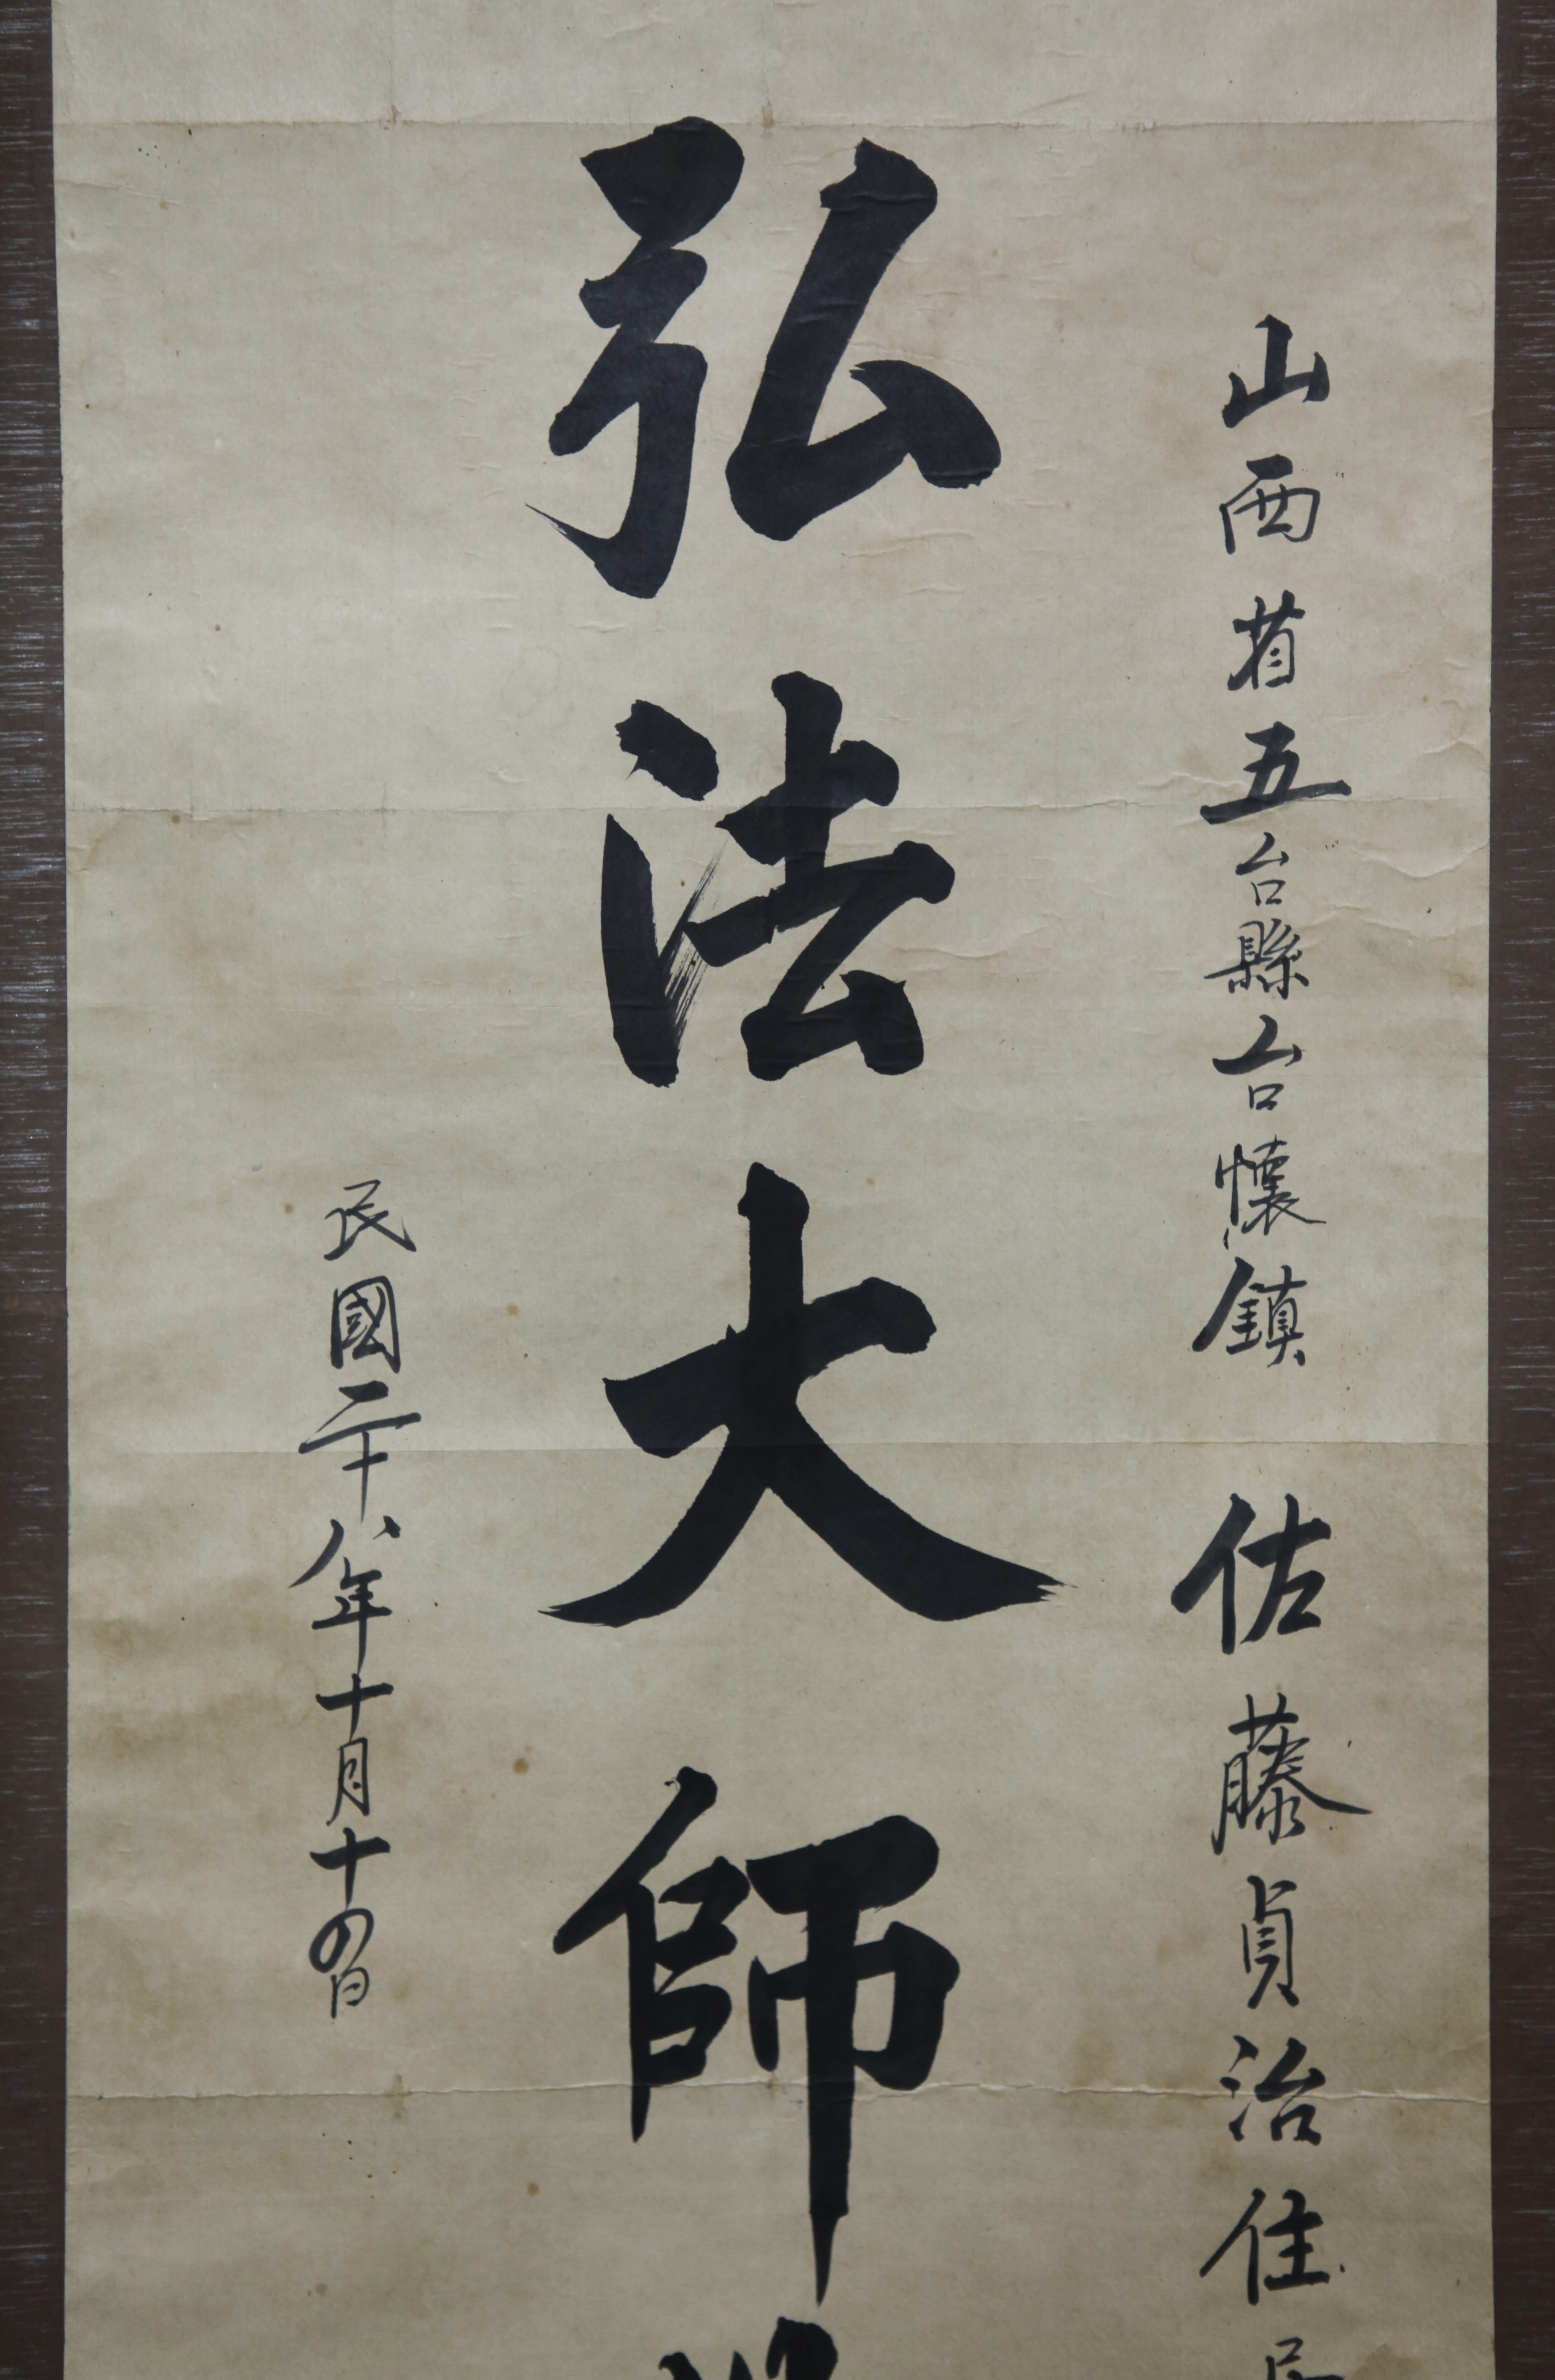 山西省五台縣台懷鎮 佐藤貞治住
弘法大師
民國二十八年十月十四日